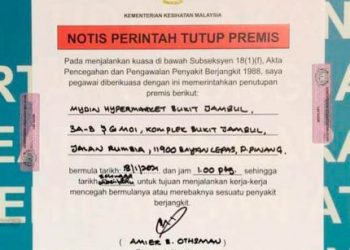 KEMENTERIAN KESIHATAN MALAYSIA
NOTIS PERINTAH TUTUP PREMIS
Pada menjalankan kuasa di bawah Subseksyen 18(1)(f), Akta
Pencegahan dan Pengawalan Penyakit Berjangkit 1988, saya
pegawai diberikuasa dengan ini memerintahkan penutupan
premis berikut:
MYDIN HYPERMARKET BUKIT JAMBUL,
KOMPLEK BUKIT JAMBUL,
JALAN RUMBIA, 11900 BAYAN LEPAS, P. PINANG.
bermula tarikh: dan jam 1.00 ptg. sehingga
tarikh untuk tujuan menjalankan kerja-kerja
mencegah bermulanya atau merebaknya sesuatu penyakit
berjangkit.
( AMIER B. OTHSMAN )